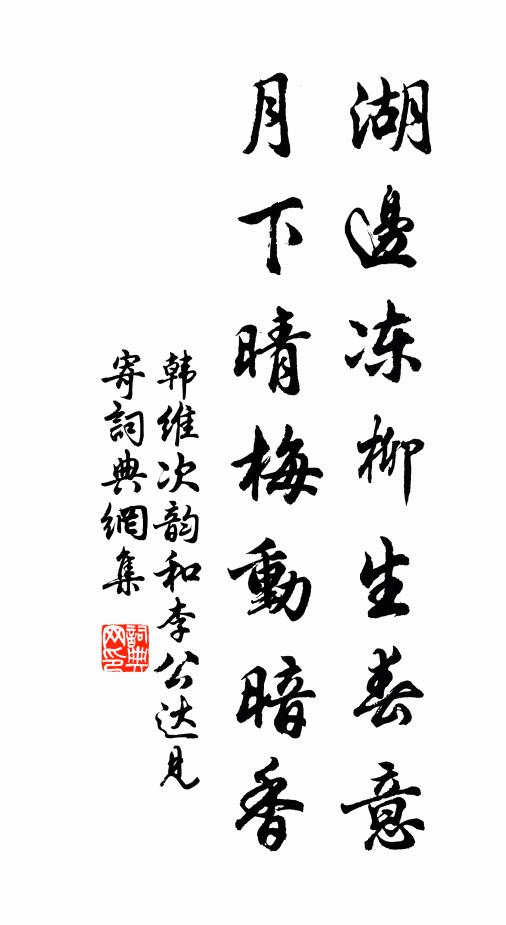 湖邊冻柳生春意
月下晴梅動暗香
韩维次韵和李公达见
寄詞典網集
詞典
网印